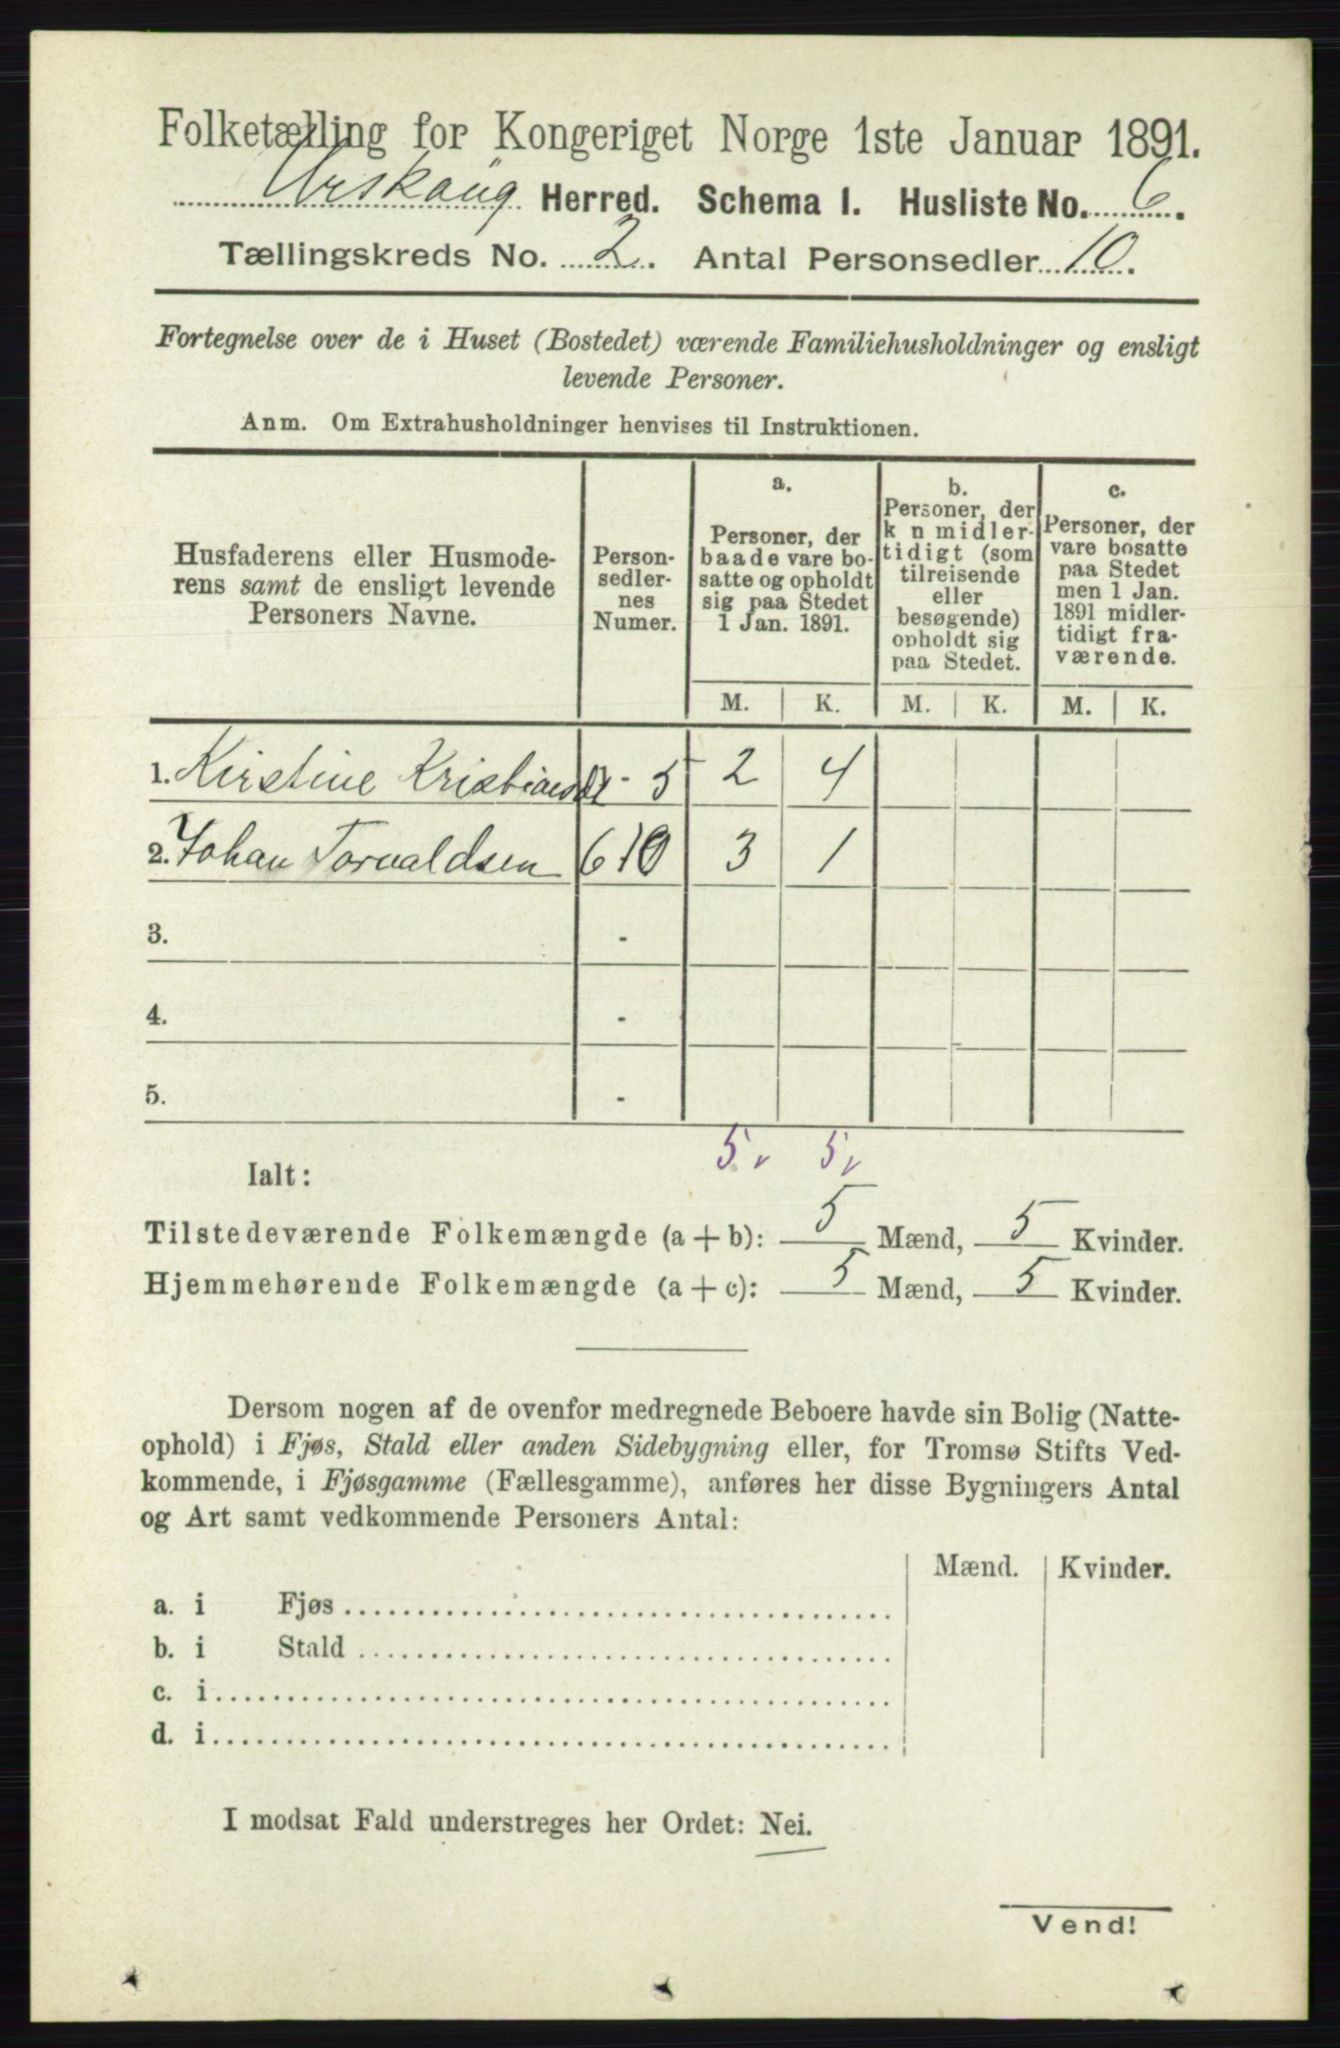 Folketælling for Kongeriget Norge 1ste Januar 1891.
Urskoug Herred. Schema I. Husliste No. 6.
Tællingskreds No. 2. Antal Personsedler 10.
Fortegnelse over de i Huset (Bostedet) værende Familiehusholdninger og ensligt
levende Personer.
Anm. Om Extrahusholdninger henvises til Instruktionen.
Husfaderens eller Husmode-
rens samt de ensligt levende
Personers Navne.
Person-
sedler-
nes
Numer.
a.
Personer, der
baade vare bo-
satte og opholdt
sig paa Stedet
1 Jan. 1891.
b.
Personer, der
k n midler-
tidigt (som
tilreisende
eller
besøgende)
opholdt sig
paa Stedet.
c.
Personer, der
vare bosatte
paa Stedet
men 1 Jan.
1891 midler-
tidigt fra-
værende.
M. K. M. K. M. K.
1. Kirstine - 5 2 4
2. Johan Torvaldsen 6 10 3 1
3. -
4. -
5. -
5 5
Ialt:
Tilstedeværende Folkemængde (a + b): 5 Mænd, 5 Kvinder.
Hjemmehørende Folkemængde (a + c): 5 Mænd, 5 Kvinder.
Dersom nogen af de ovenfor medregnede Beboere havde sin Bolig (Natte-
ophold) i Fjøs, Stald eller anden Sidebygning eller, for Tromsø Stifts Ved-
kommende, i Fjøsgamme (Fællesgamme), anføres her disse Bygningers Antal
og Art samt vedkommende Personers Antal:
Mænd. Kvinder.
a. i Fjøs
b. i Stald
c. i
d. i
I modsat Fald understreges her Ordet: Nei.
Vend!